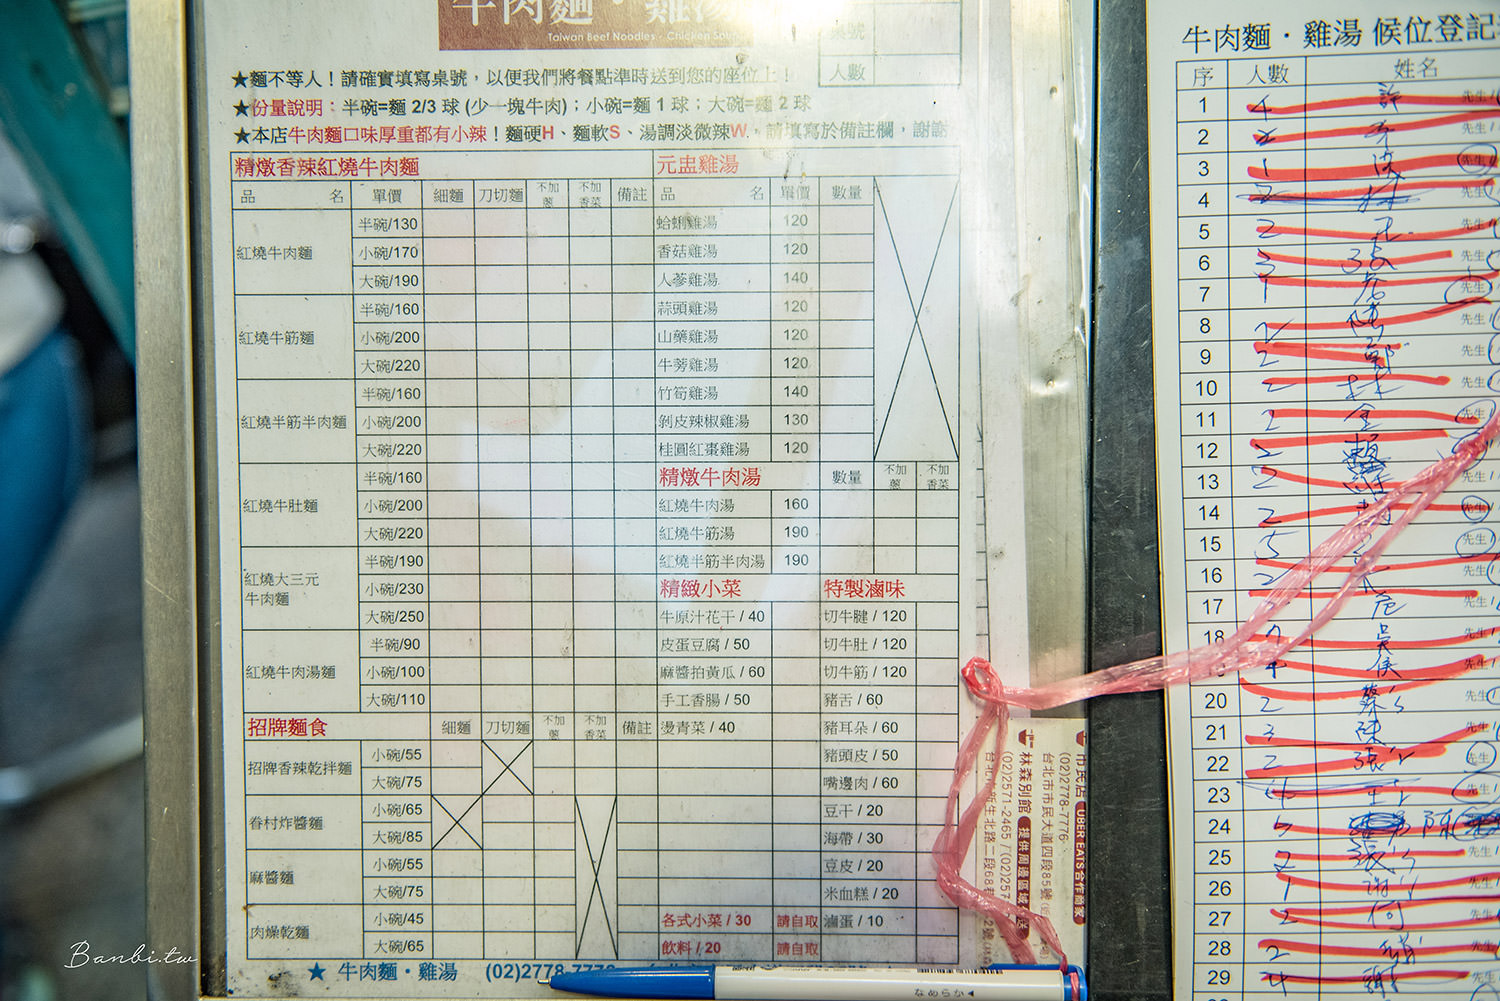 牛肉麵・雞湯
Taiwan Beef Noodles・Chicken Soup
桌號
人數
★麵不等人！請確實填寫桌號，以便我們將餐點準時送到您的座位上！
★份量說明：半碗=麵 2/3 球 (少一塊牛肉)；小碗=麵 1 球；大碗=麵 2 球
★本店牛肉麵口味厚重都有小辣！麵硬H、麵軟S、湯調淡微辣W，請填寫於備註欄，謝謝
精燉香辣紅燒牛肉麵
品名 單價 細麵 刀切麵 不加蔥 不加香菜 備註
紅燒牛肉麵 半碗/130
小碗/170
大碗/190
紅燒牛筋麵 半碗/160
小碗/200
大碗/220
紅燒半筋半肉麵 半碗/160
小碗/200
大碗/220
紅燒牛肚麵 半碗/160
小碗/200
大碗/220
紅燒大三元牛肉麵 半碗/190
小碗/230
大碗/250
紅燒牛肉湯麵 半碗/90
小碗/100
大碗/110
招牌麵食 細麵 刀切麵 不加蔥 不加香菜 備註
招牌香辣乾拌麵 小碗/55
大碗/75
眷村炸醬麵 小碗/65
大碗/85
麻醬麵 小碗/55
大碗/75
肉燥乾麵 小碗/45
大碗/65
元盅雞湯
品名 單價 數量
蛤蜊雞湯 120
香菇雞湯 120
人蔘雞湯 140
蒜頭雞湯 120
山藥雞湯 120
牛蒡雞湯 120
竹筍雞湯 140
剝皮辣椒雞湯 130
桂圓紅棗雞湯 120
精燉牛肉湯 數量 不加蔥 不加香菜
紅燒牛肉湯 160
紅燒牛筋湯 190
紅燒半筋半肉湯 190
精緻小菜
牛原汁花干 / 40
皮蛋豆腐 / 50
麻醬拍黃瓜 / 60
手工香腸 / 50
燙青菜 / 40
各式小菜 / 30 請自取
飲料 / 20 請自取
特製滷味
切牛腱 / 120
切牛肚 / 120
切牛筋 / 120
豬舌 / 60
豬耳朵 / 60
豬頭皮 / 50
嘴邊肉 / 60
豆干 / 20
海帶 / 30
豆皮 / 20
米血糕 / 20
滷蛋 / 10
★ 牛肉麵・雞湯 (02)2778-7776
なめらか
市民店 UBER EATS合作商家
(02)2778-7776
台北市市民大道四段85號
林森別館 提供周邊區域
(02)2571-2465
牛肉麵・雞湯 候位登記
序 人數 姓名
1 4 許 先生/
2 2 李 先生/
3 1 先生/
4 2 林 先生/
5 2 先生/
6 3 先生/
7 1 詹 先生/
8 2 陳 先生/
9 2 鄭 先生/
10 2 林 先生/
11 2 金 先生/
12 2 賴
13 2 先生/
14 2 先生/
15 5 先生/
16 2 先生/
17 危 先生/
18 吳 先生/
4 侯 先生/
20 2 蔡 先生/
21 3 陳 先生/
22 2 張 先生/
23 4 王 先生/
24 陳
25 2 張 先生/
26 1 謝 先生/
27 2 何 先生/
28 2 先生/
29 4 謝 先生/
Banbi.tw